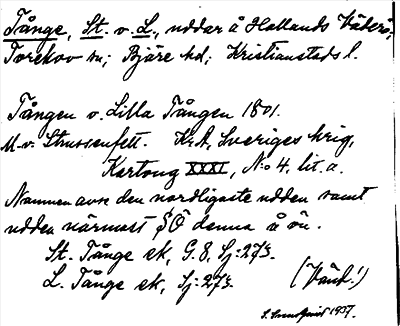 Tånge, St. v. L., uddar å Hallands Väderö,
Torekov sn; Bjäre hd; Kristianstads l.
Tången v. Lilla Tången 1801.
M. v. Strussenfelt. KrA, Sveriges krig,
Kartong XXXI, N:o 4, lit. a.
Namnen avse den nordligaste udden samt
udden närmast SÖ denna å ön.
St. Tånge ek, G. 8, Sj: 273.
L. Tånge ek, Sj: 273.
(Vänd!)
1937.